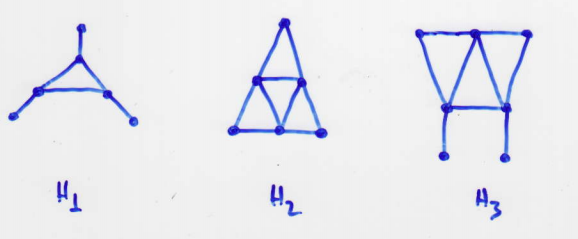 H1 H2 H3